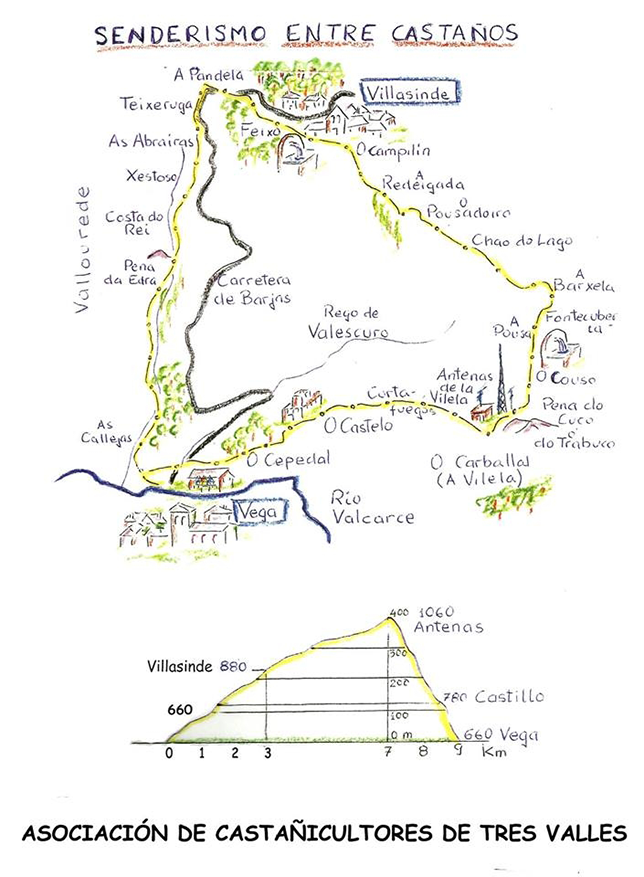 SENDERISMO ENTRE CASTAÑOS
A Pandela
Villasinde
Teixeruga
Feixo
As Abrairas
O Campilin
Xestoso
A
Redeigada
Vallourede
Costa do
Rei
O
Pousadoiro
Chao do Lago
Pena
da Edra
Carretera
de Barjas
A
Barxela
Rego de
Valescuro
Fontecuber
ta
A
Pousa
Antenas
de la
Vilela
O Couso
Corta-
fuegos
Pena do
Cuco
o
do Trabuco
O Castelo
As
Callejas
O Cepedal
O Carballal
(A Vilela)
Río
Valcarce
Vega
400 1060
Antenas
300
Villasinde 880
200
780 Castillo
660
100
0 m
660 Vega
0 1 2 3 7 8 9 Km
ASOCIACIÓN DE CASTAÑICULTORES DE TRES VALLES